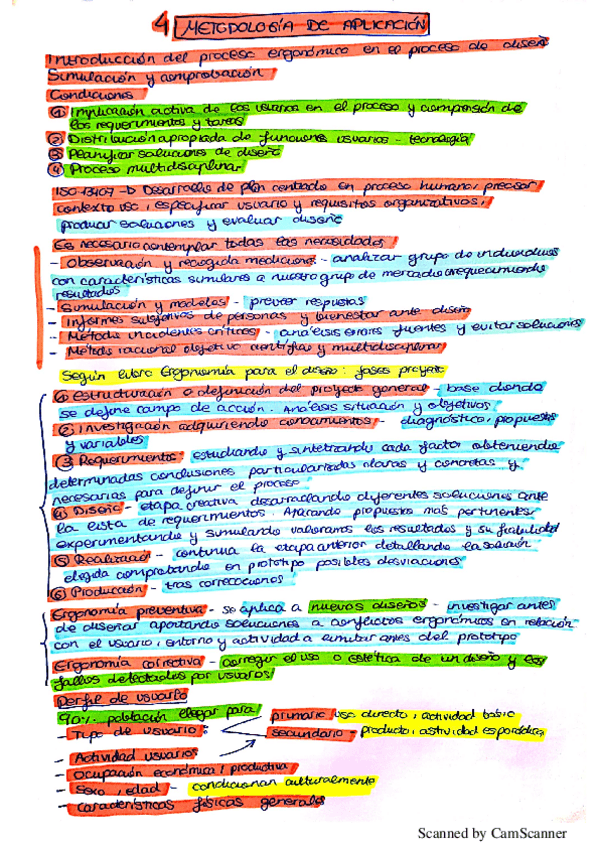 4 METODOLOGÍA DE APLICACIÓN
Introducción del proceso ergonómico en el proceso de diseño
Simulación y comprobación
Condiciones
① Implicación activa de los usuarios en el proceso y comprensión de
los requerimientos y tareas
② Distribución apropiada de funciones usuarios - tecnología
③ Planificar soluciones de diseño
④ Proceso multidisciplinar
ISO 13407 → Desarrollo de plan centrado en proceso humano, precisar
contexto uso, especificar usuario y requisitos organizativos,
producir soluciones y evaluar diseño
Es necesario contemplar todas las necesidades
- Observación y recogida mediciones - analizar grupo de individuos
con características similares a nuestro grupo de mercado
resultados
- Simulación y modelos - prever respuestas
- Informes subjetivos de personas y bienestar ante diseño
- Método incidentes críticos - análisis errores fuentes y evitar soluciones
- Método racional objetivo científico y multidisciplinar
Según libro Ergonomía para el diseño: fases proyecto
① Estructuración o definición del proyecto general - base donde
se define campo de acción. Análisis situación y objetivos
② Investigación adquiriendo conocimientos - diagnóstico, propuestas
y variables
③ Requerimientos estudiando y sintetizando cada factor obteniendo
determinadas conclusiones particularizadas claras y concretas y
necesarias para definir el proceso
④ Diseño - etapa creativa desarrollando diferentes soluciones ante
la lista de requerimientos. propuestas más pertinentes
experimentando y simulando valoramos los resultados y su factibilidad
⑤ Realización - continua la etapa anterior detallando la solución
elegida comprobando en prototipo posibles desviaciones
⑥ Producción - tras correcciones
Ergonomía preventiva - se aplica a nuevos diseños - investigar antes
de diseñar aportando soluciones a conflictos ergonómicos en relación
con el usuario, entorno y actividad a simular antes del prototipo
Ergonomía correctiva - corregir el uso o estética de un diseño y los
fallos detectados por usuarios
Perfil de usuario
90% población elegar para
- Tipo de usuario: primario uso directo, actividad básic
secundario - producto, actividad esporádica
- Actividad usuarios
- Ocupación económica / productiva
- Sexo, edad - condicionan culturalmente
- características físicas generales
Scanned by CamScanner